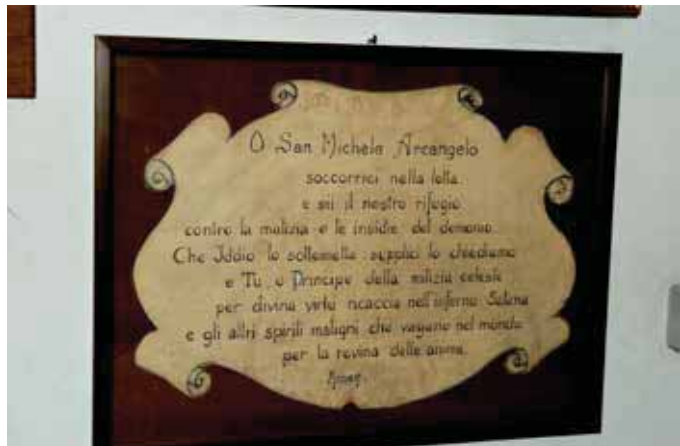 O San Michele Arcangelo
soccorrici nella lotta
e sii il nostro rifugio
contro la malizia e le insidie del demonio.
Che Iddio lo sottometta: supplici lo chiediamo
e Tu, o Principe della milizia celeste
per divina virtù ricaccia nell'inferno Satana
e gli altri spiriti maligni che vagano nel mondo
per la rovina delle anime.
Amen.